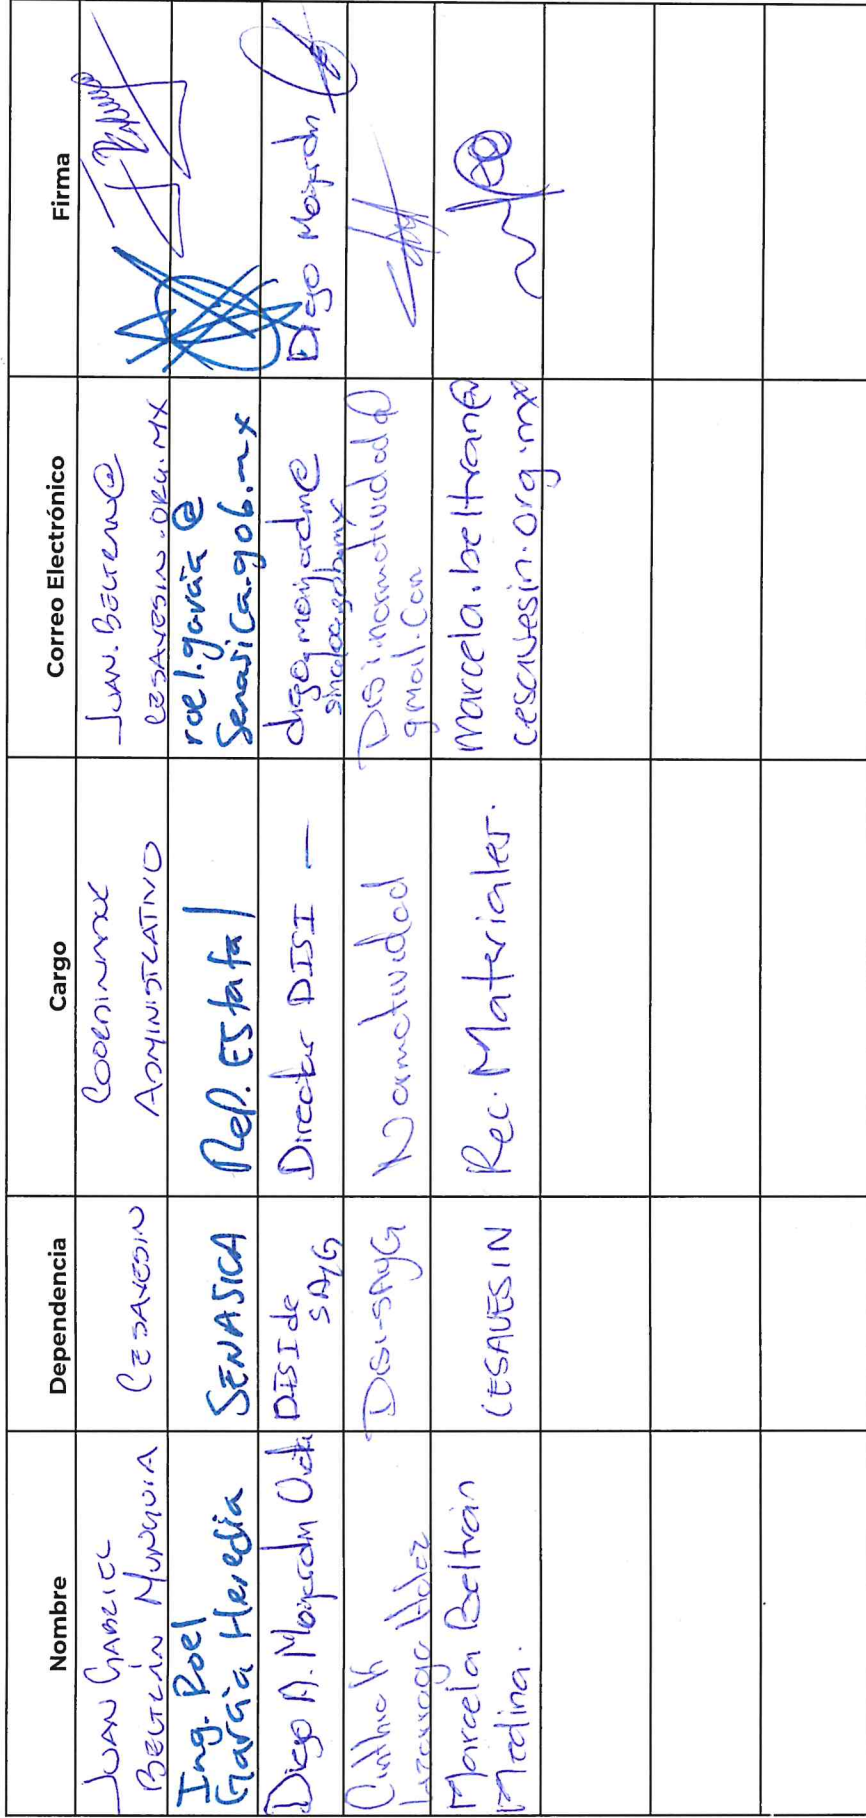 Nombre Dependencia Cargo Correo Electrónico Firma
JUAN GABRIEL
BELTRÁN MUNGUIA
CESAVESIN
COORDINADOR
ADMINISTRATIVO
JUAN.BELTRAN@
CESAVESIN.ORG.MX
Ing. Roel
García Heredia
SENASICA
Rep. Estatal
roel.garcia@
Senasica.gob.mx
Diego A. Mayardn
DISI de
SAyG
Director DISI —
sinaloa.gob.mx
Diego
Cinthia K
Lizarraga Hdez
DISI-SAyG
Normatividad
Disi.normatividad@
gmail.com
Marcela Beltrán
Medina.
CESAVESIN
Rec. Materiales.
marcela.beltran@
cesavesin.org.mx